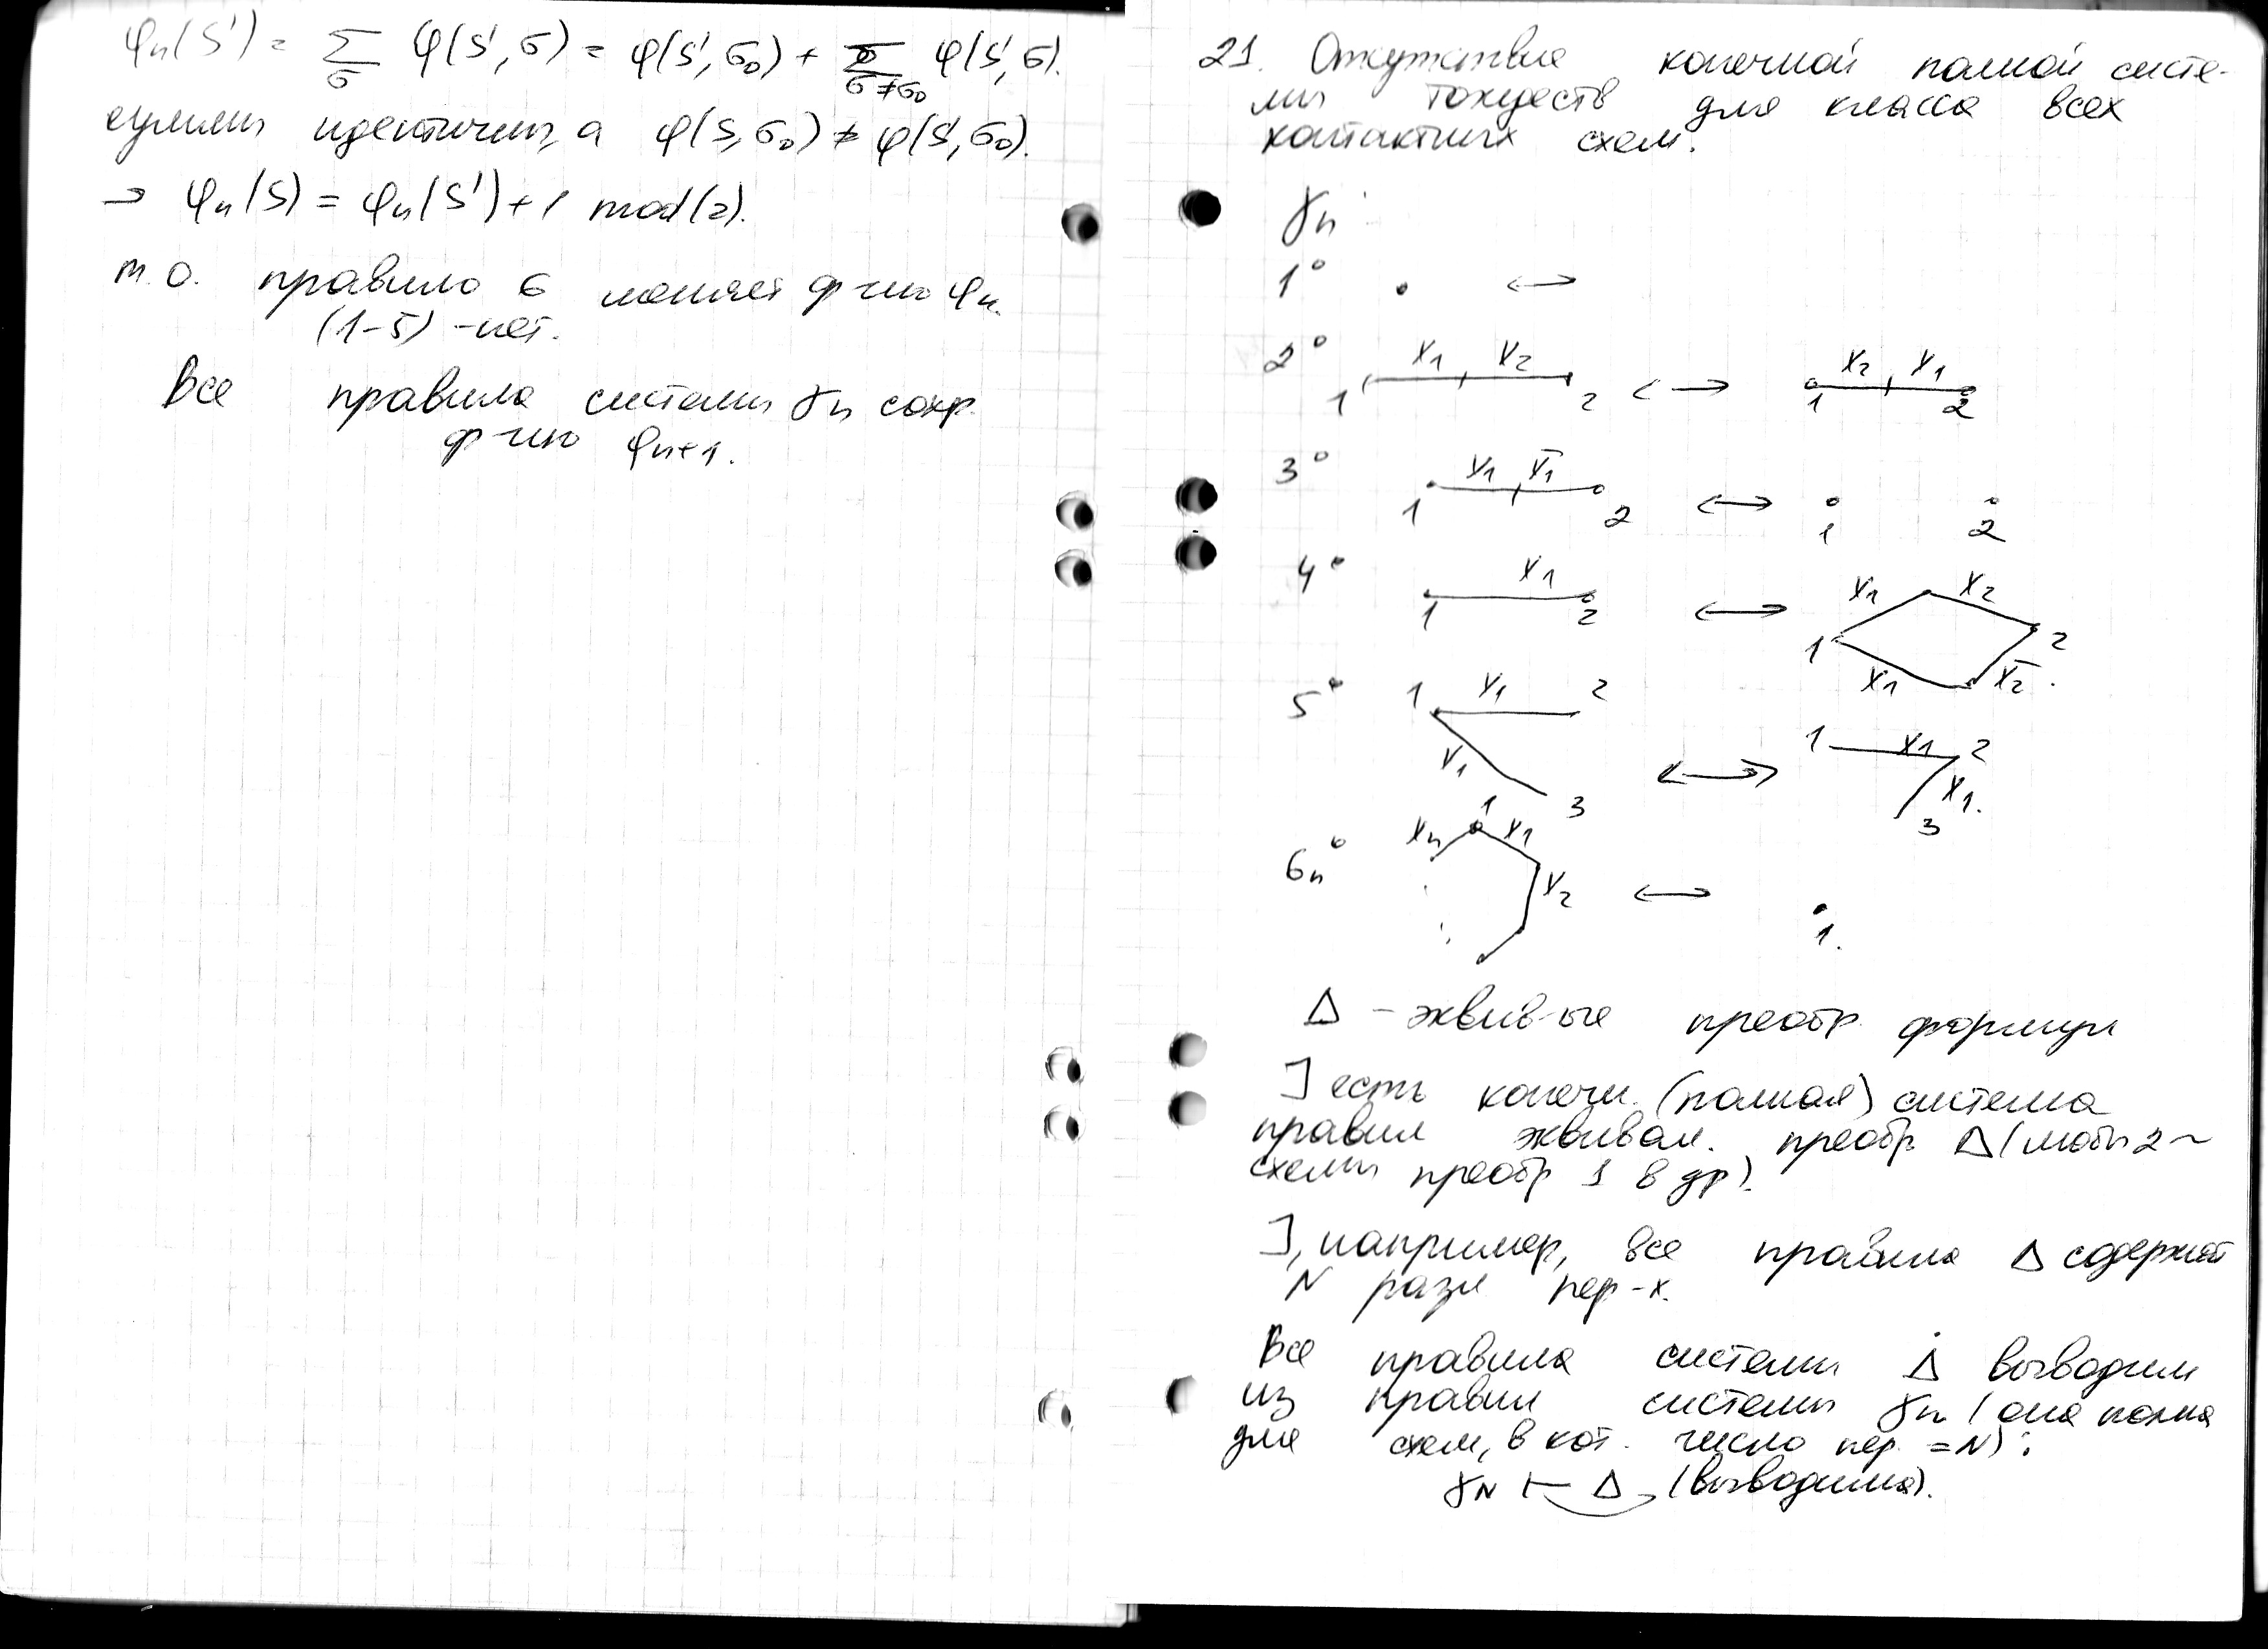 φₙ(S') = Σ_σ φ(S', σ) = φ(S', σ₀) + Σ_{σ≠σ₀} φ(S', σ).
идентичны, а φ(S, σ₀) ≠ φ(S', σ₀).
→ φₙ(S) = φₙ(S') + 1 mod(2).
т.о. правило 6 меняет ф-цию φₙ.
(1-5) - нет.
Все правила системы γₙ сохр.
ф-цию φₙ₊₁.
21. Отсутствие конечной полной систе-
мы тождеств для класса всех
контактных схем.
γₙ
1° • ↔
2° 1 x₁ x₂ 2 ↔ 1 x₂ x₁ 2
3° 1 x₁ x̄₁ 2 ↔ 1 2
4° 1 x₁ 2 ↔ 1 x₁ x₂ 2 x₁ x̄₂.
5° 1 x₁ 2 x₁ 3 ↔ 1 x₁ 2 x₁. 3
6ₙ° xₙ 1 x₁ x₂ ↔ 1.
Δ - эквив-ые преобр. формул
] есть конечн. (полная) система
правил эквивал. преобр. Δ (любы 2 ~
схемы преобр 1 в др).
], например, все правила Δ содержат
N разл пер-х.
Все правила системы Δ выводим
из правил системы γₙ (она полна
для схем, в кот. число пер. = N):
γ_N ⊢ Δ (выводима).